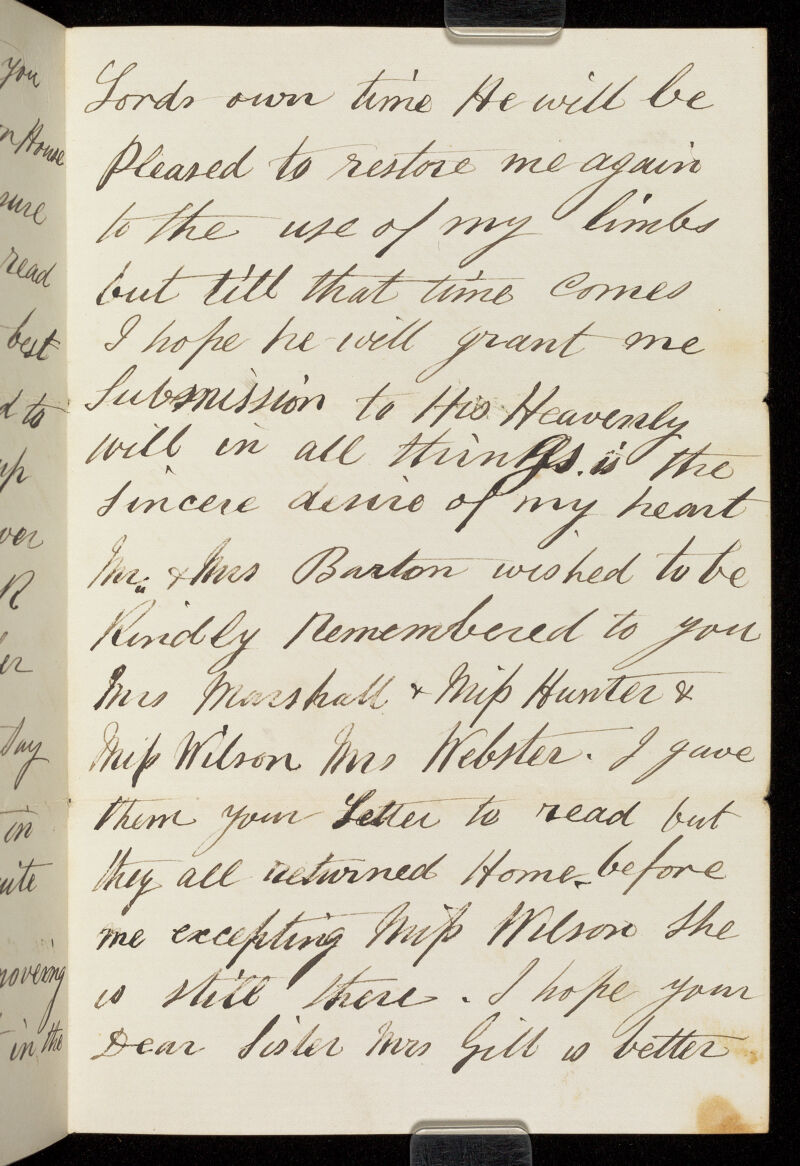 you
n House
sure
read
best
d to
up
ver
R
er
Day
in
uite
movering
in the
Lords own time He will be
Pleased to restore me again
to the use of my limbs
but till that time comes
I hope he will grant me
Submission to His Heavenly
will in all things. is the
sincere desire of my heart
Mr. & Mrs Barton wished to be
Kindly Remembered to you
Mrs Marshall & Miſs Hunter &
Miſs Wilson Mrs Webster. I gave
them your Letter to read but
they all returned Home before
me excepting Miſs Wilson She
is still there. I hope your
Dear Sister Mrs Gill is better